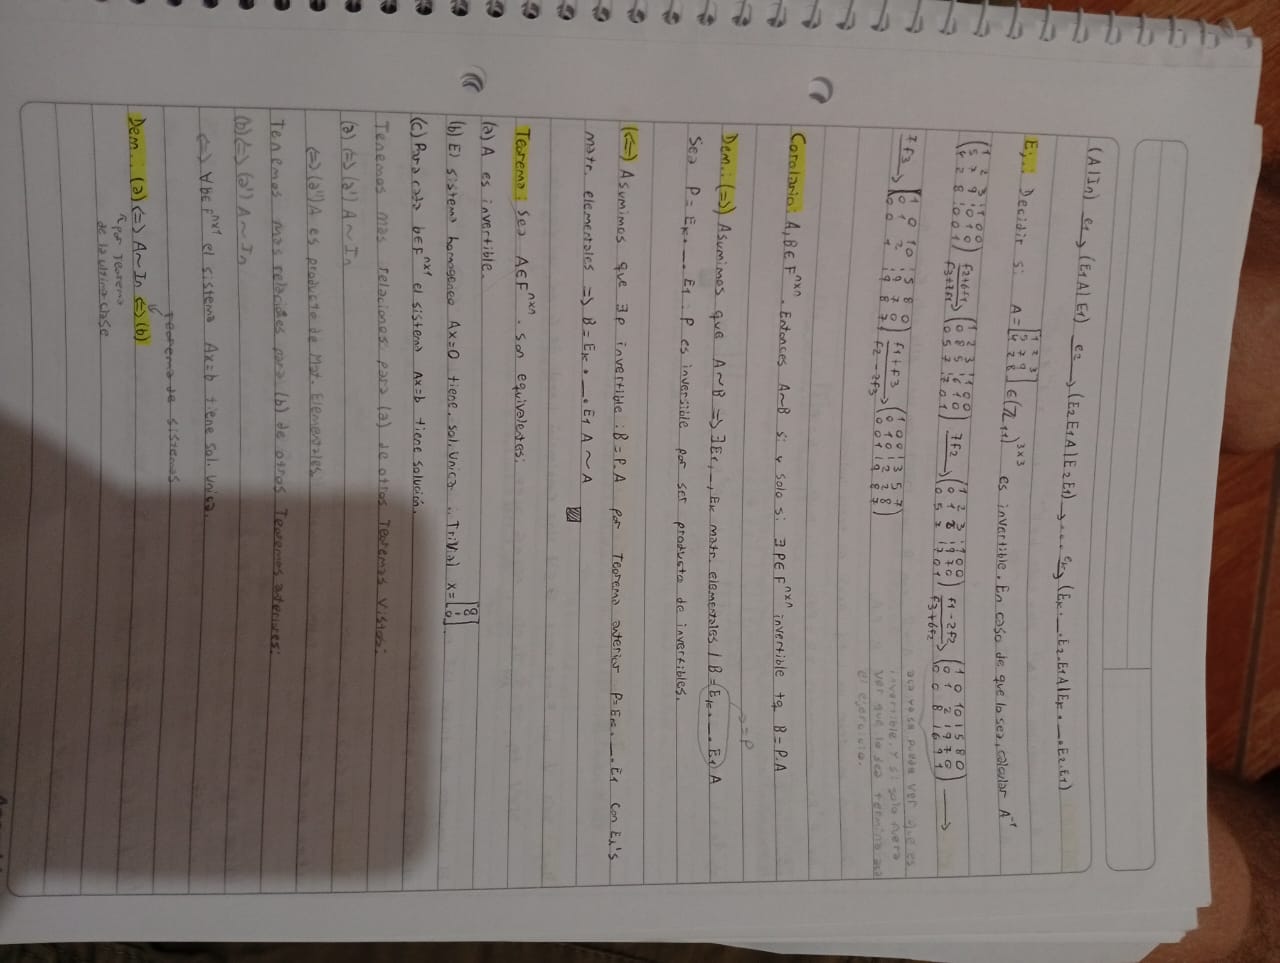 (A|In) e1→ (E1A|E1) e2→ (E2E1A|E2E1) →... ek→ (Ek. _ .E2.E1A|Ek. _ .E2.E1)
Ej.: Decidir si A=[1 2 3; 5 7 9; 4 2 8] ∈(ℤ11)^3x3 es invertible. En caso de que lo sea, calcular A⁻¹
(1 2 3 | 1 0 0; 5 7 9 | 0 1 0; 4 2 8 | 0 0 1) f2+6f1, f3+7f1 → (1 2 3 | 1 0 0; 0 8 5 | 6 1 0; 0 5 7 | 7 0 1) 7f2 → (1 2 3 | 1 0 0; 0 1 2 | 9 7 0; 0 5 7 | 7 0 1) f1-2f2, f3+6f2 → (1 0 10 | 5 8 0; 0 1 2 | 9 7 0; 0 0 8 | 6 9 1) →
7f3 → (1 0 10 | 5 8 0; 0 1 2 | 9 7 0; 0 0 1 | 9 8 7) f1+f3, f2-2f3 → (1 0 0 | 3 5 7; 0 1 0 | 2 2 8; 0 0 1 | 9 8 7)
aca ya se puede ver que es
invertible. Y si solo fuera
ver que lo sea termina aca
el ejercicio.
Corolario: A,B∈F^nxn. Entonces A~B si y solo si ∃P∈F^nxn invertible tq B=P.A
→=P
Dem.: (=>) Asumimos que A~B => ∃E1, _, Ek matr. elementales / B=Ek. _ .E1 A
Sea P=Ek. _ .E1. P es inversible por ser producto de invertibles.
(<=) Asumimos que ∃P invertible: B=P.A por Teorema anterior P=Ek. _ .E1 con Ei's
matr. elementales => B=Ek. _ .E1 A ~ A
Teorema: Sea A∈F^nxn. son equivalentes:
(a) A es invertible.
(b) El sistema homogeneo Ax=0 tiene. sol. Unica. Trivial x=[0; ⋮; 0]
(c) Para cada b∈F^nx1 el sistema Ax=b tiene solución.
Tenemos mas relaciones para (a) de otros Teoremas vistos:
(a) <=> (a') A~In
<=> (a'') A es producto de Mat. Elementales
Tenemos mas relaciones para (b) de otros Teoremas anteriores:
(b) <=> (a') A~In
<=> ∀b∈F^nx1 el sistema Ax=b tiene sol. unica.
Teorema de sistemas
Dem.: (a) <=> A~In <=> (b)
por Teorema
de la ultima clase